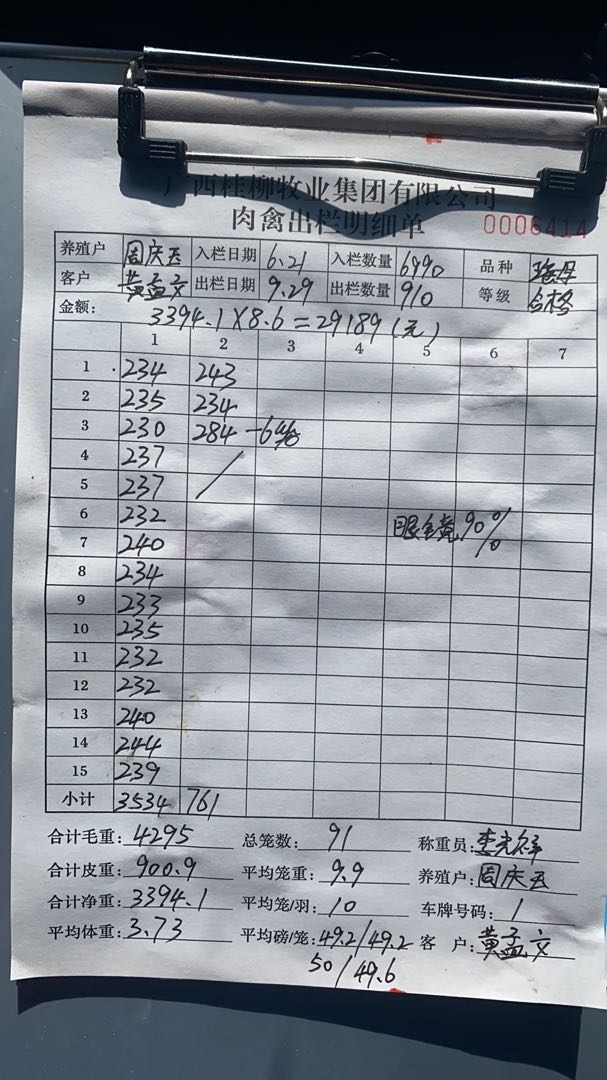 广西桂柳牧业集团有限公司
肉禽出栏明细单 0006414
养殖户 周庆玉 入栏日期 6.21 入栏数量 6990 品种
客户 黄孟文 出栏日期 9.29 出栏数量 910 等级 合格
金额: 3394.1×8.6=29189(元)
1 2 3 4 5 6 7
1 234 243
2 235 234
3 230 284 -6
4 237
5 237
6 232 眼金黄90%
7 240
8 234
9 233
10 235
11 232
12 232
13 240
14 244
15 239
小计 3534 761
合计毛重: 4295 总笼数: 91 称重员:
合计皮重: 900.9 平均笼重: 9.9 养殖户: 周庆玉
合计净重: 3394.1 平均笼/羽: 10 车牌号码: 1
平均体重: 3.73 平均磅/笼: 49.2/49.2 客户: 黄孟文
50/49.6